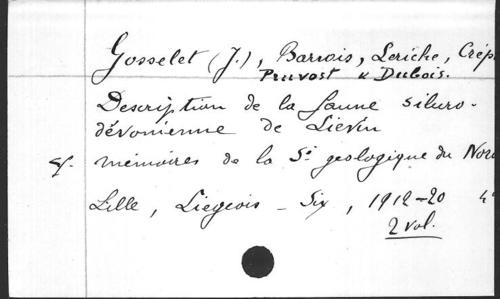 Gosselet (J.), Barrois, Leriche, Crép
Pruvost & Dubois.
Description de la faune siluro-
dévonienne de Lievin
mémoires de la Sté geologique du Nord
Lille, Liegeois - Six, 1912-20 4°
2 vol.